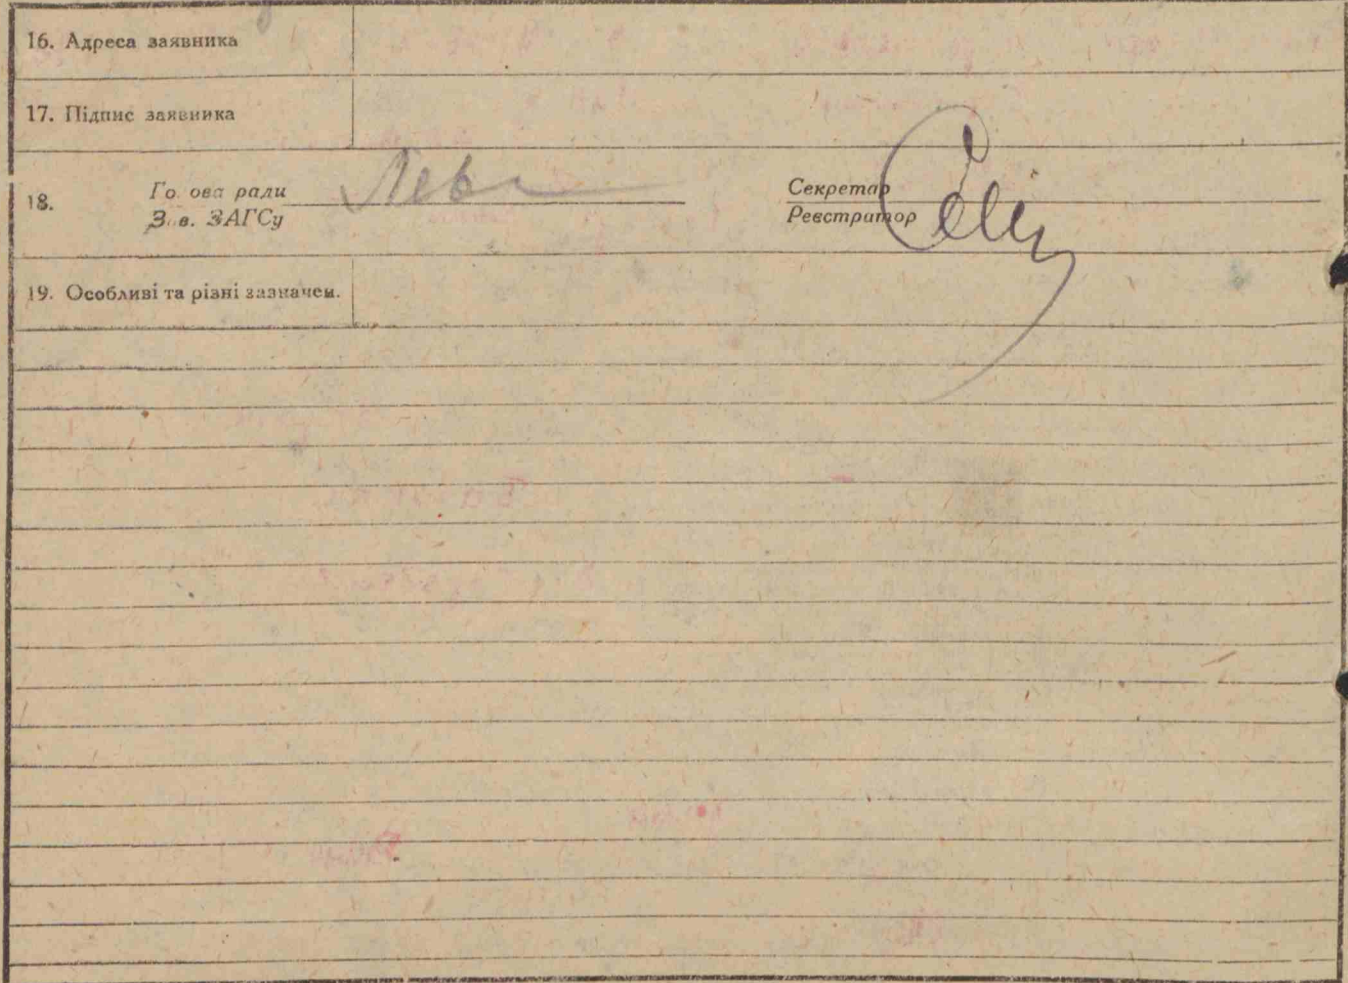 16. Адреса заявника
17. Підпис заявника
18. Го ова ради
З в. ЗАГСу
Секретар
Реєстратор
19. Особливі та різні зазначен.